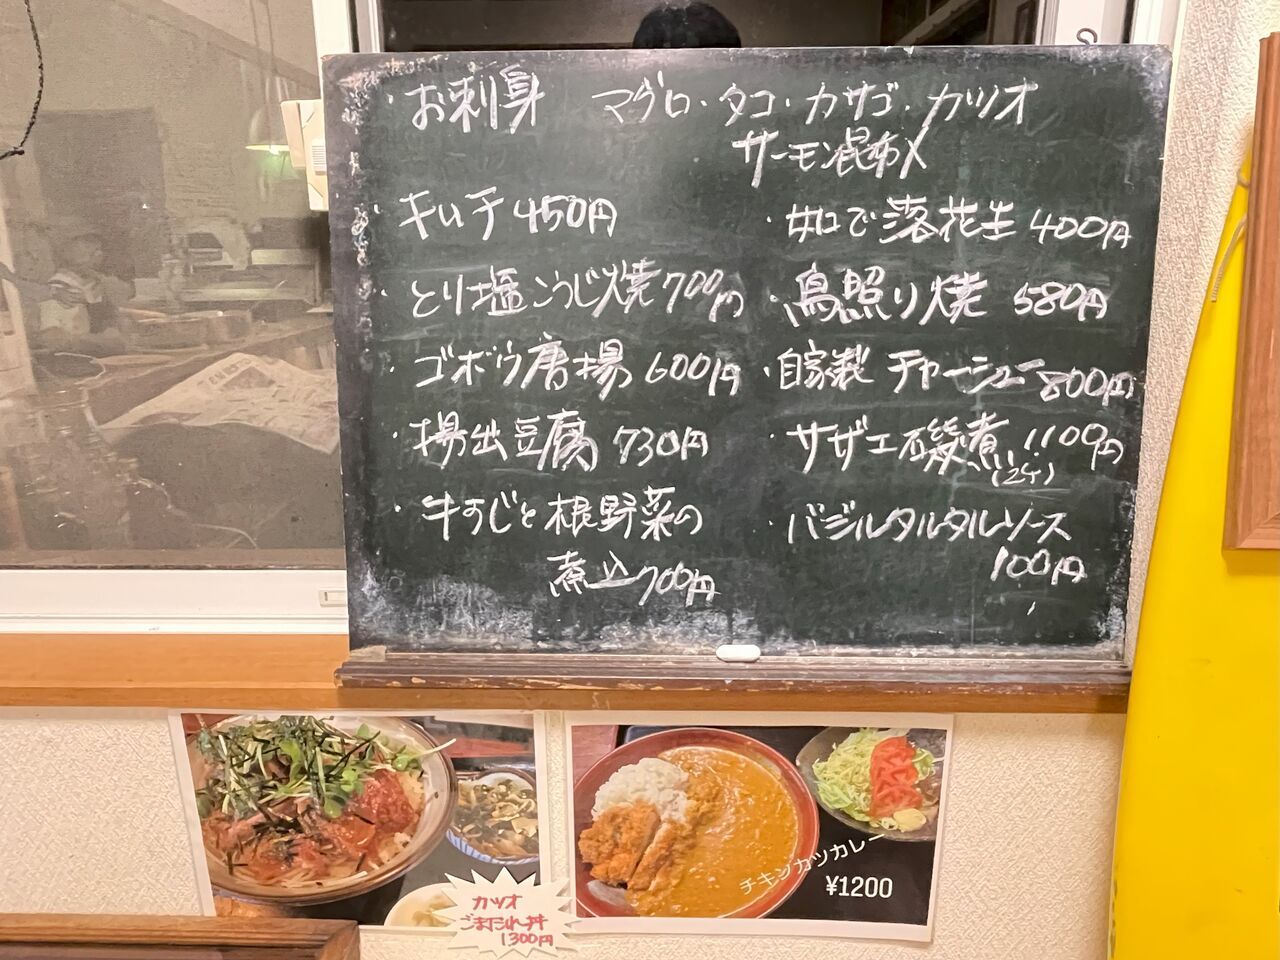 ・お刺身 マグロ・タコ・カサゴ・カツオ
サーモン昆布〆
・キムチ 450円
・ゆで落花生 400円
・とり塩こうじ焼 700円
・鳥照り焼 580円
・ゴボウ唐揚 600円
・自家製 チャーシュー 800円
・揚出豆腐 730円
・サザエ磯煮 1100円
(2ケ)
・牛すじと根野菜の
煮込 700円
・バジルタルタルソース
100円
カツオ
ごまだれ丼
1300円
チキンカツカレー
¥1200